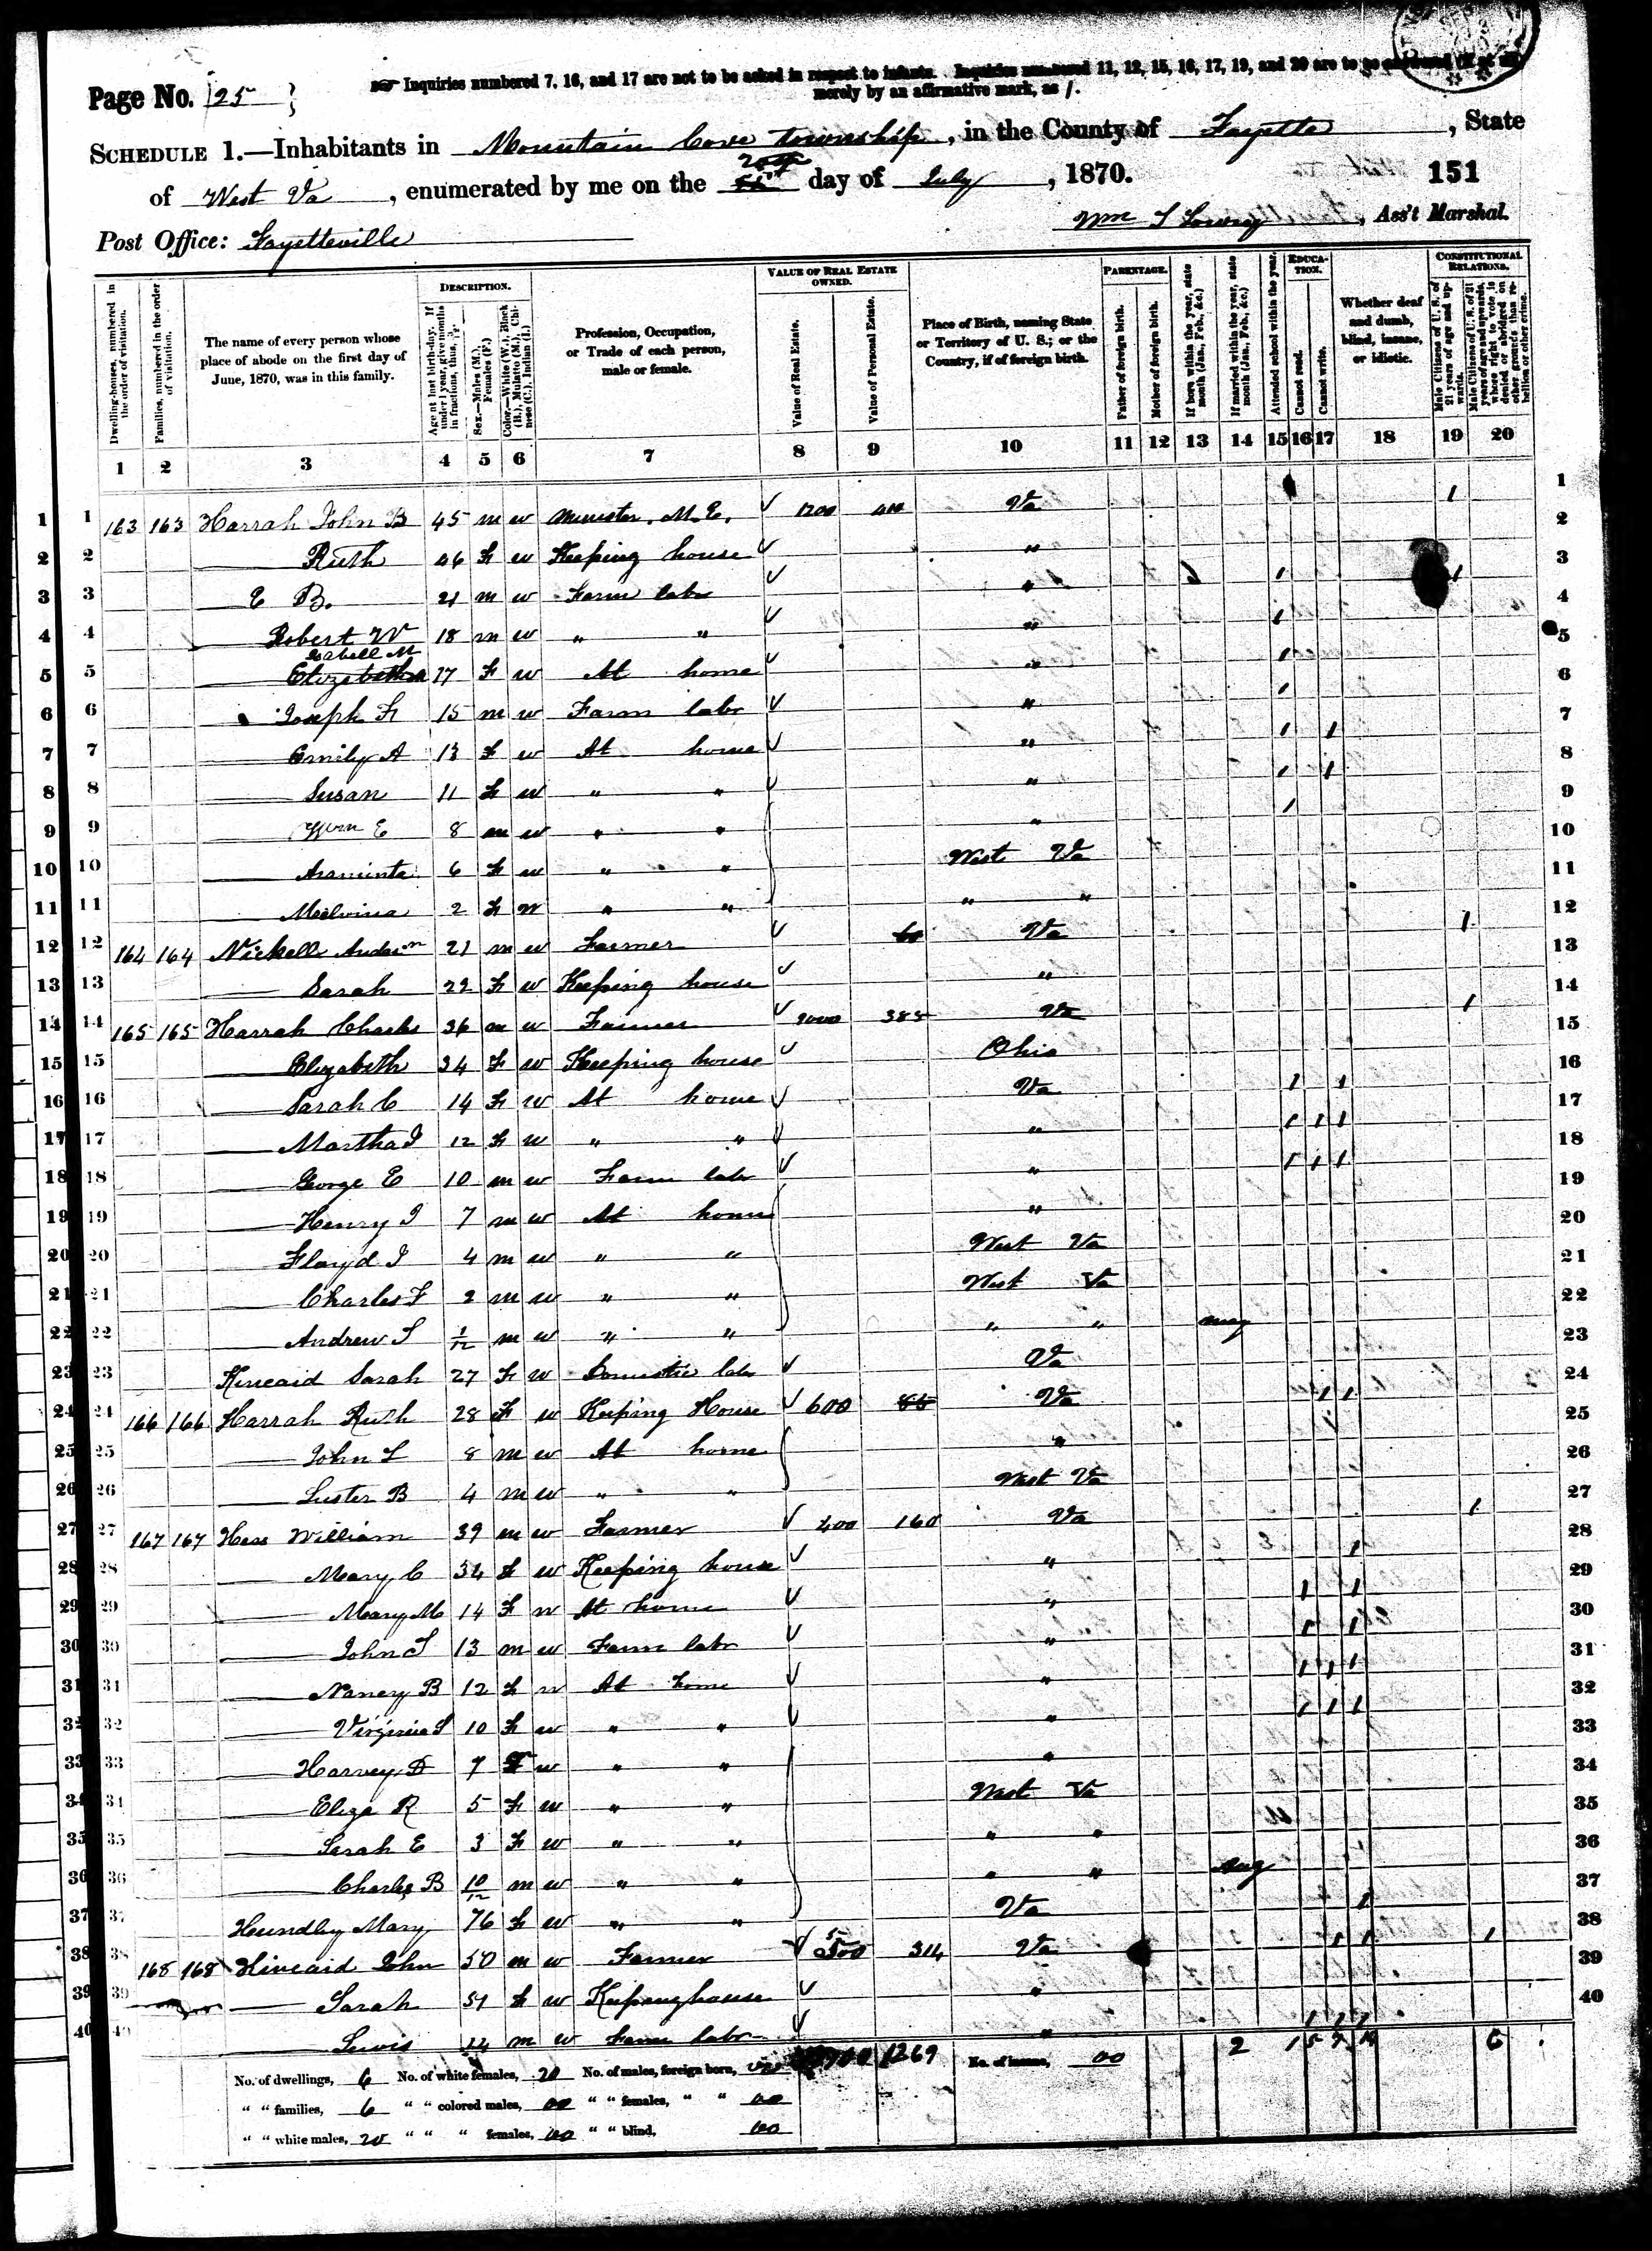 Page No. 125
☞ Inquiries numbered 7, 16, and 17 are not to be asked in respect to infants. Inquiries numbered 11, 12, 15, 16, 17, 19, and 20 are to be answered
merely by an affirmative mark, as /.
SCHEDULE 1.—Inhabitants in Mountain Cove township, in the County of Fayette, State
of West Va, enumerated by me on the 20th day of July, 1870. 151
Post Office: Fayetteville
Wm T Lowry, Ass't Marshal.
Dwelling-houses, numbered in the order of visitation.
Families, numbered in the order of visitation.
The name of every person whose place of abode on the first day of June, 1870, was in this family.
DESCRIPTION.
Age at last birth-day. If under 1 year, give months in fractions, thus, 3/12
Sex.—Males (M.), Females (F.)
Color.—White (W.), Black (B.), Mulatto (M.), Chinese (C.), Indian (I.)
Profession, Occupation, or Trade of each person, male or female.
VALUE OF REAL ESTATE OWNED.
Value of Real Estate.
Value of Personal Estate.
Place of Birth, naming State or Territory of U. S.; or the Country, if of foreign birth.
PARENTAGE.
Father of foreign birth.
Mother of foreign birth.
If born within the year, state month (Jan., Feb., &c.)
If married within the year, state month (Jan., Feb., &c.)
Attended school within the year.
EDUCATION.
Cannot read.
Cannot write.
Whether deaf and dumb, blind, insane, or idiotic.
CONSTITUTIONAL RELATIONS.
Male Citizens of U. S. of 21 years of age and upwards.
Male Citizens of U. S. of 21 years of age and upwards, whose right to vote is denied or abridged on other grounds than rebellion or other crime.
1 2 3 4 5 6 7 8 9 10 11 12 13 14 15 16 17 18 19 20
1 163 163 Harrah John B 45 m w Minister. M.E. 1200 400 Va 1
2 Ruth 46 F w Keeping house "
3 E B. 21 m w Farm labr " 1 1
4 Robert W 18 m w " " " 1
5 Isabell M 17 F w At home " 1
6 Joseph F 15 m w Farm labr " 1
7 Emily A 13 F w At home " 1 1
8 Susan 11 F w " " " 1 1
9 Wm E 8 m w " " " 1
10 Araminta 6 F w " " West Va
11 Melvina 2 F w " " " "
12 164 164 Nickell 21 m w Farmer Va 1
13 Sarah 22 F w Keeping house "
14 165 165 Harrah Charles 36 m w Farmer 385 Va 1
15 Elizabeth 34 F w Keeping house Ohio
16 Sarah C 14 F w At home Va 1 1
17 Martha J 12 F w " " " 1 1 1
18 George E 10 m w Farm labr " 1 1 1
19 Henry J 7 m w At home "
20 Floyd J 4 m w " " West Va
21 Charles F 2 m w " " West Va
22 Andrew S 1/12 m w " " " " may
23 Kincaid Sarah 27 F w Domestic labr Va
24 166 166 Harrah Ruth 28 F w Keeping House 600 Va 1 1
25 John L 8 m w At home "
26 Luster B 4 m w " " West Va
27 167 167 Hess William 39 m w Farmer 400 160 Va 1
28 Mary C 34 F w Keeping house " 1
29 Mary M 14 F w At home " 1 1
30 John S 13 m w Farm labr " 1 1
31 Nancy B 12 F w At home " 1 1 1
32 Virginia S 10 F w " " " 1 1 1
33 Harvey D 7 w " " "
34 Eliza R 5 F w " " West Va
35 Sarah E 3 F w " " " "
36 Charles B 10/12 m w " " " " Aug
37 Hundley Mary 76 F w " " Va 1
38 168 168 Kincaid John 50 m w Farmer 500 314 Va 1 1 1
39 Sarah 51 F w Keeping house "
40 Lewis 14 m w Farm labr " 1 1 1
No. of dwellings, 6 No. of white females, 20 No. of males, foreign born, 00 1269 No. of insane, 00 2 15 6
" " families, 6 " " colored males, 00 " " females, " " 00
" " white males, 20 " " " females, 00 " " blind, 00